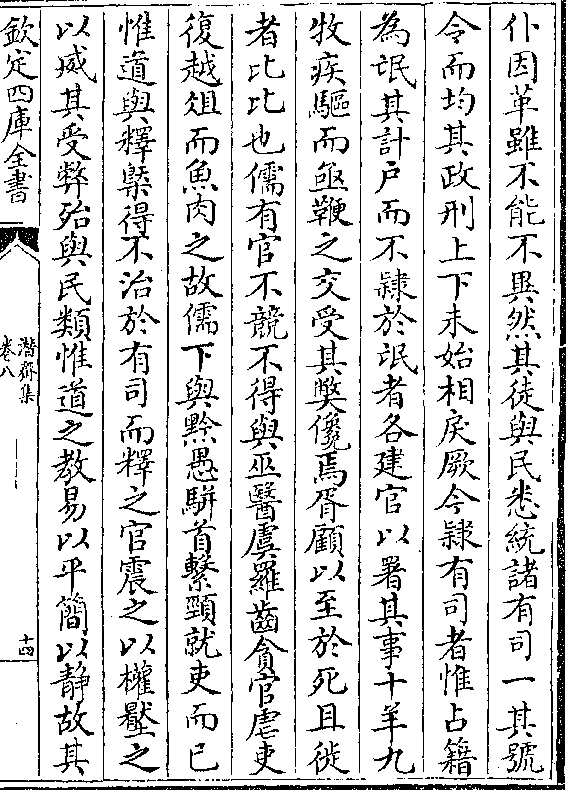 仆因革雖不能不異然其徒與民悉統諸有司一其號
令而均其政刑上下未始相戾厥今隷有司者惟占籍
為氓其計戸而不隷於氓者各建官以署其事十羊九
牧疾驅而亟鞭之交受其獘儳焉胥顧以至於死且徙
者比比也儒有官不競不得與巫醫虞羅齒貪官虐吏
復越俎而魚肉之故儒下與黔愚駢首繫頸就吏而已
惟道與釋槩得不治於有司而釋之官震之以權壓之
以威其受弊殆與民類惟道之教易以平簡以静故其
欽定四庫全書
潛齋集
卷八
十四